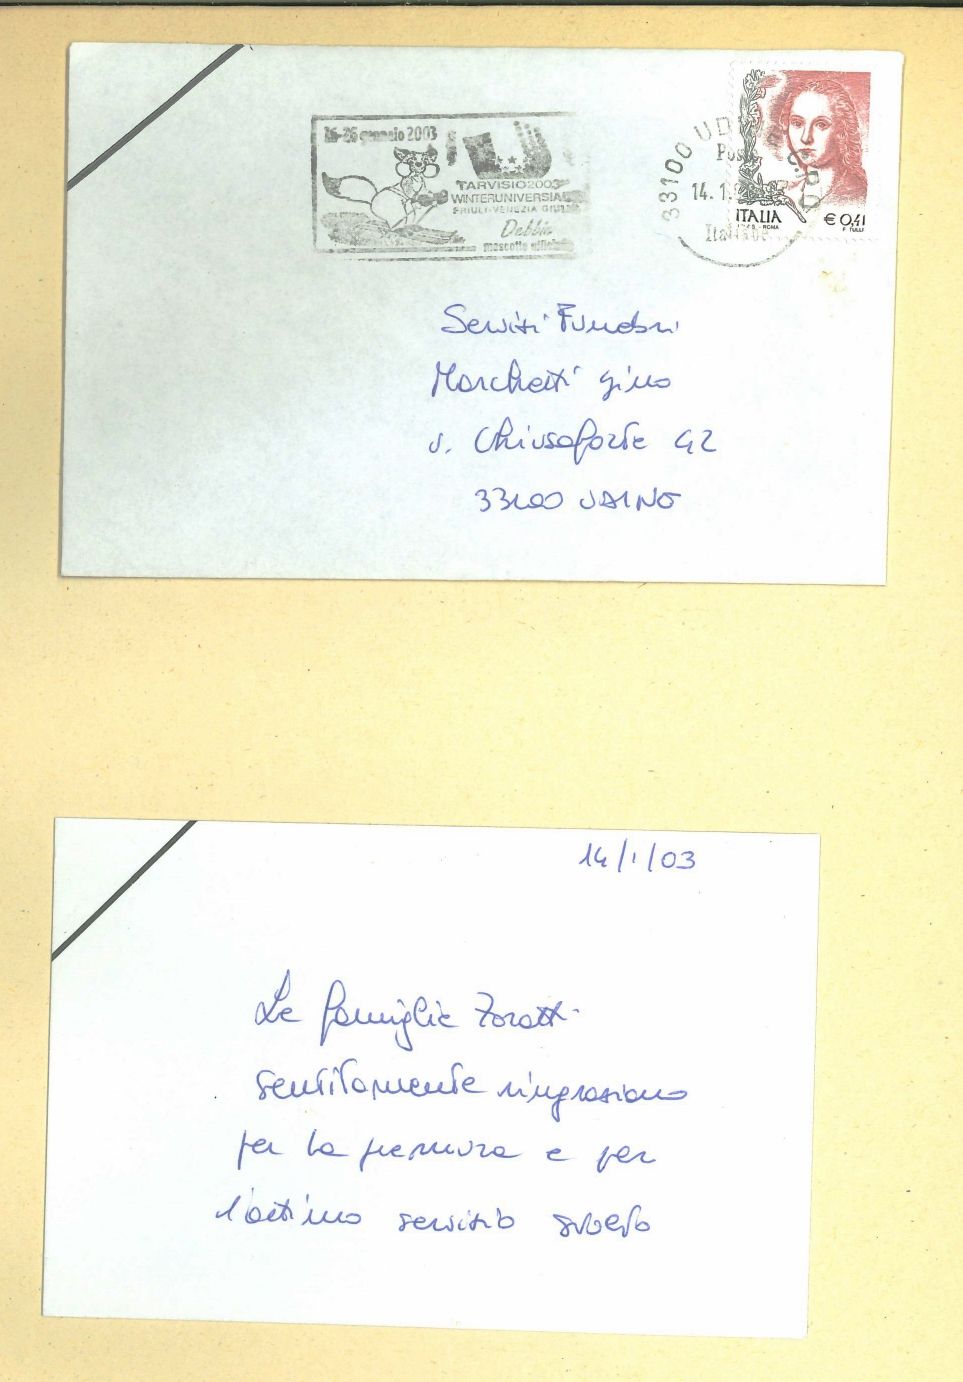 16-26 gennaio 2003
TARVISIO2003
WINTERUNIVERSIA
FRIULI-VENEZIA GIULI
Debbie
mascotte ufficiale
33100 UDINE C.P.O.
Poste
14.1.
Italiane
ITALIA
€ 0,41
ROMA
F. TULLI
Servizi Funebri
Marchetti Gino
v. Chiusaforte 42
33100 UDINE
14/1/03
Le famiglie Zoratti
sentitamente ringraziano
per la premura e per
l'ottimo servizio svolto